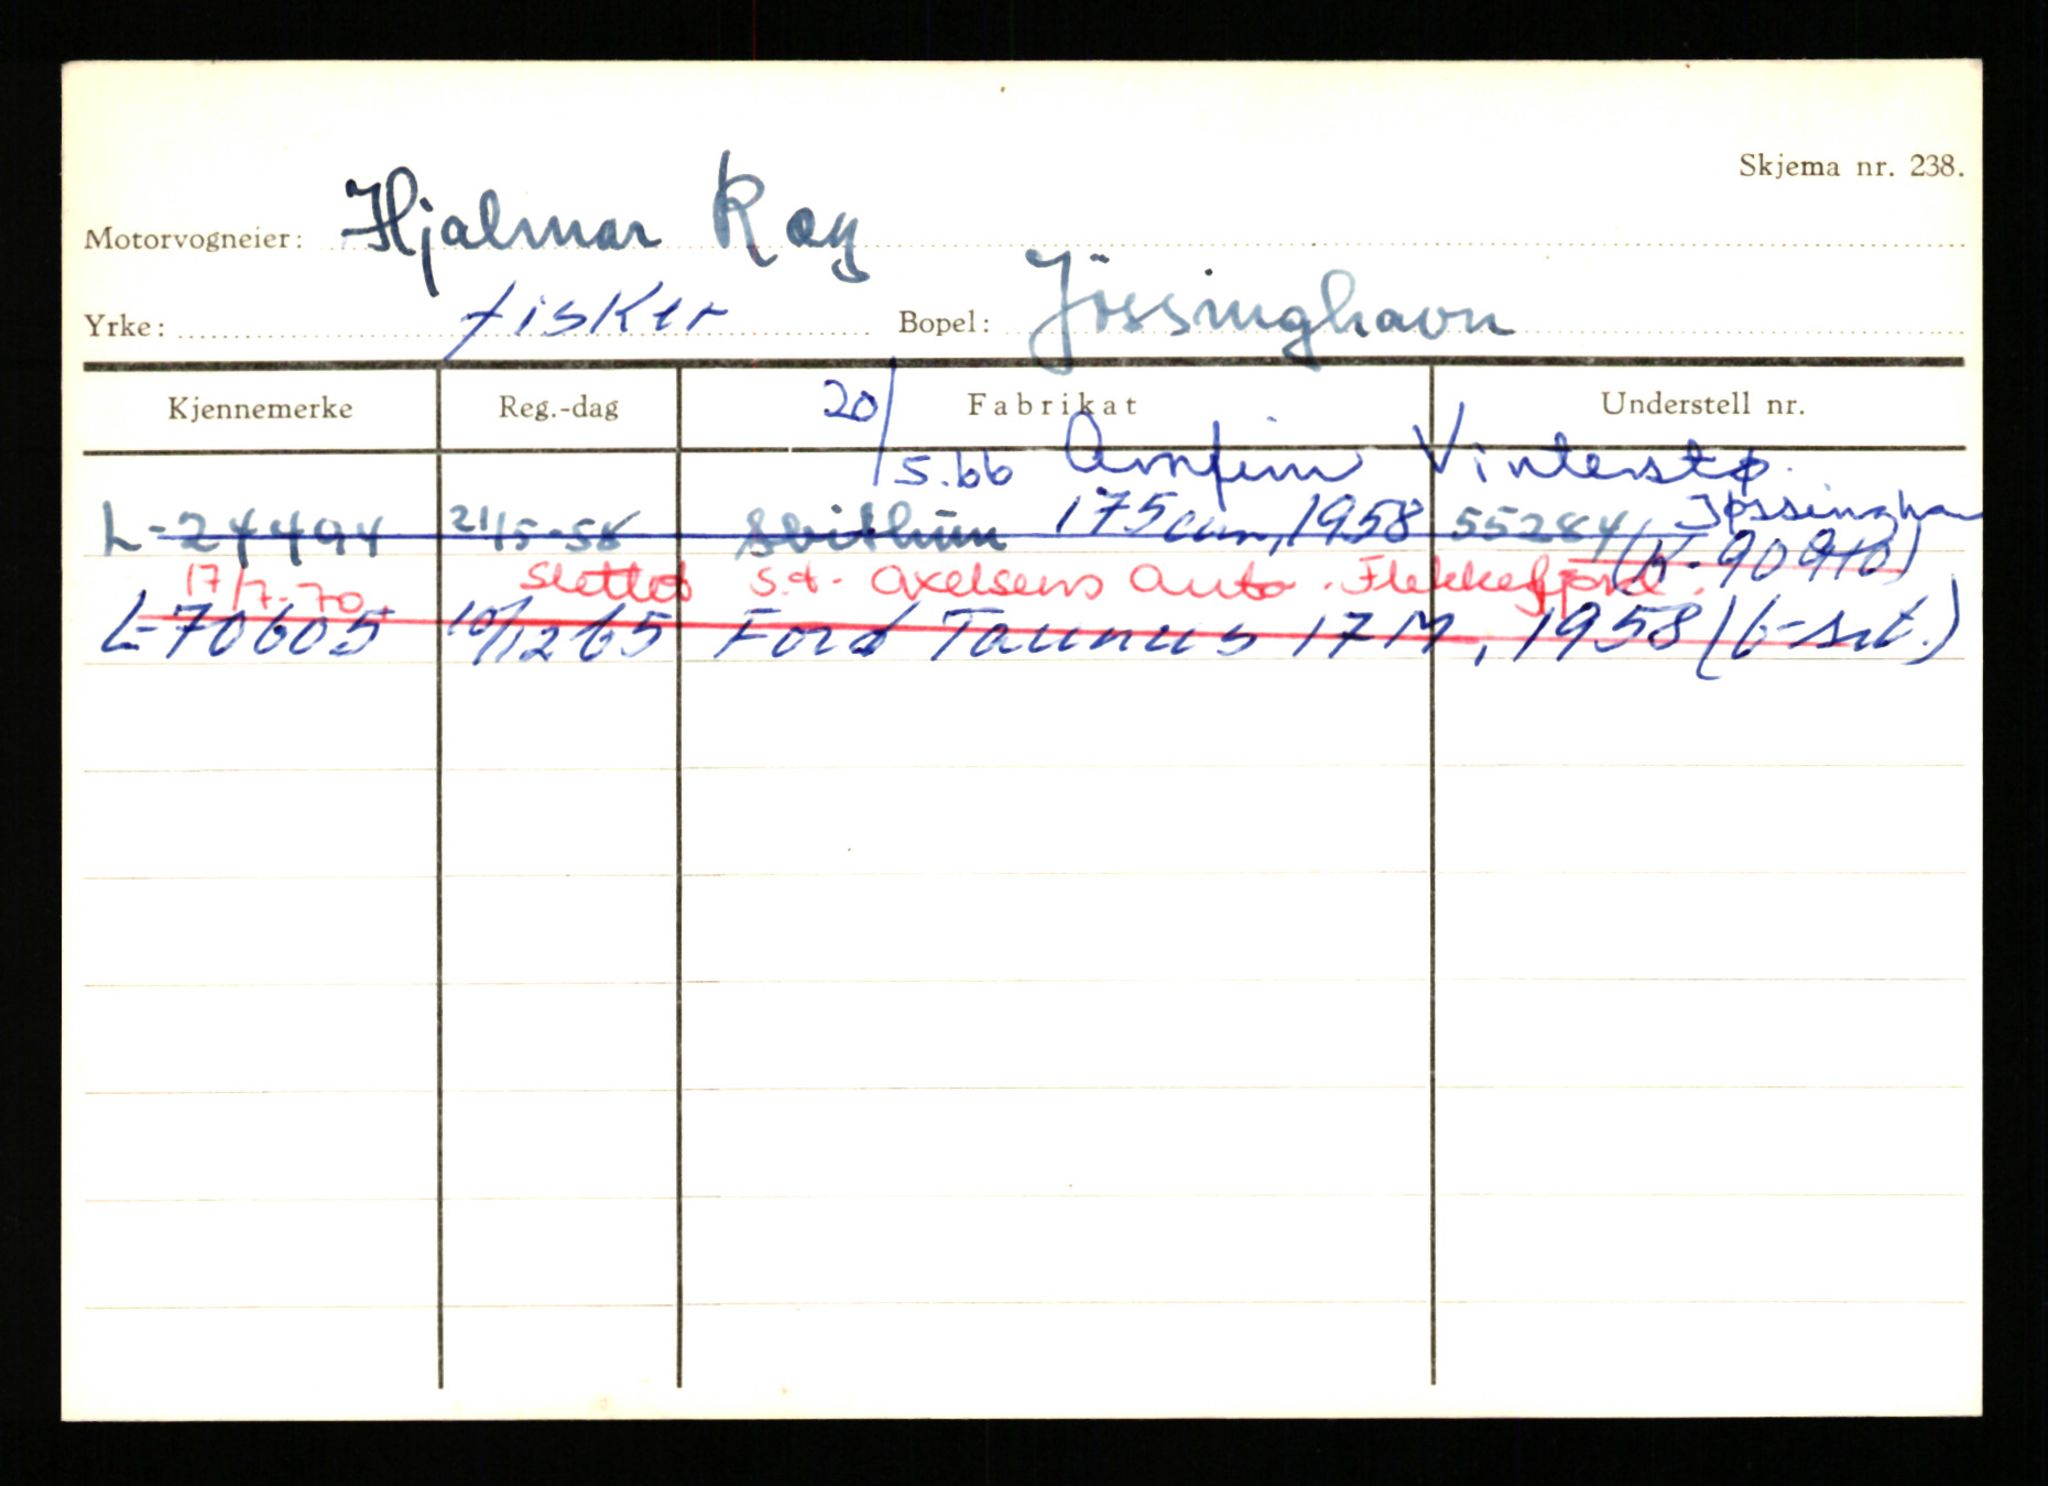 Skjema nr. 238.
Motorvogneier: Hjalmar Ræg
Yrke: fisker Bopel: Jössinghavn
Kjennemerke Reg.-dag Fabrikat Understell nr.
20/5.66 Arnfinn Vinterstø
Jøssingha
L-24494 21/5-58 Svithun 175 ccm, 1958 55284
17/7-70 Slettet s.d. Axelsens Auto. Flekkefjord. (K-90910)
L-70605 10/12 65 Ford Taunus 17M, 1958 (6-sit.)